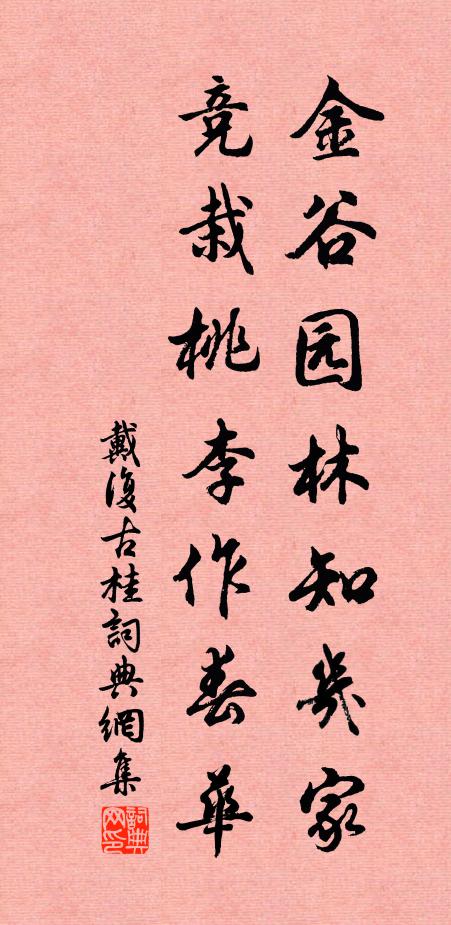 金谷园林知幾家
竞栽桃李作春華
戴復古桂詞典網集
詞典网印